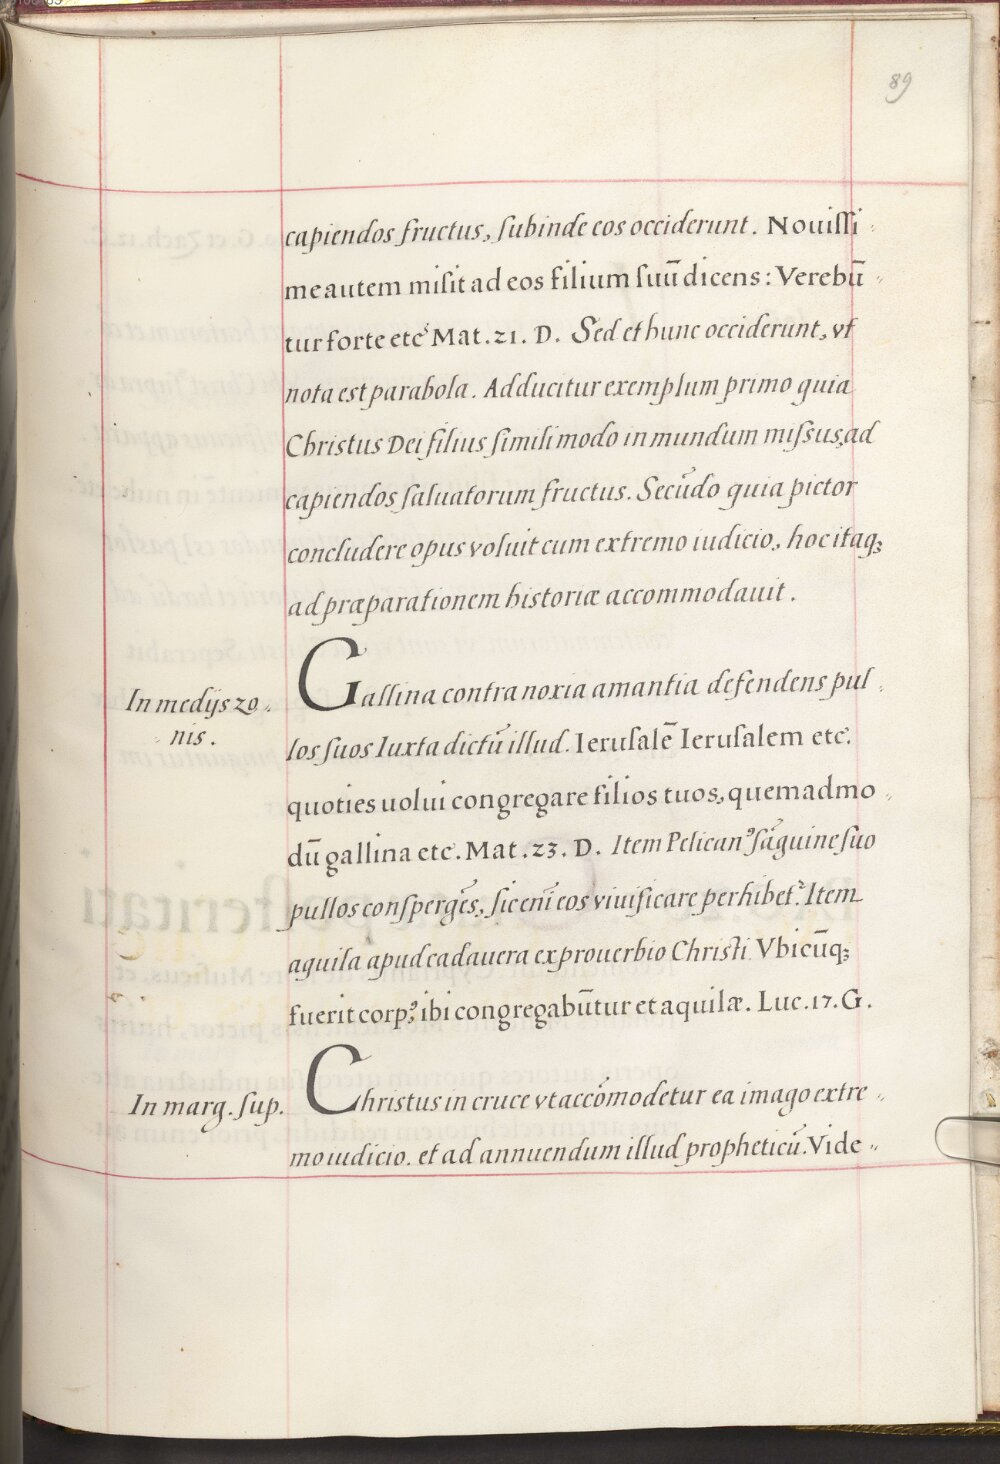 89
capiendos fructus, ſubinde eos occiderunt. Nouiſſi„
me autem miſit ad eos filium ſuū dicens: Verebū„
tur forte etc̉ Mat. 21. D. Sed et hunc occiderunt, vt
nota est parabola. Adducitur exemplum primo quia
Christus Dei filius ſimili modo in mundum miſsus, ad
capiendos ſaluatorum fructus. Secūdo quia pictor
concludere opus voluit cum extremo iudicio, hoc itaqꝫ
ad præparationem historiæ accommodauit.
In medijs zo„
nis.
Gallina contra noxia amantia defendens pul„
los ſuos Iuxta dictū illud. Ieruſalē Ieruſalem etc̉.
quoties uolui congregare filios tuos, quemadmo„
dū gallina etc̉. Mat. 23. D. Item Pelicanꝰ ſāguine ſuo
pullos conſpergēs, ſic enī eos viuificare perhibetᷣ. Item
aquila apud cadauera ex prouerbio Christi. Vbicūqꝫ
fuerit corpꝰ, ibi congregabūtur et aquilæ. Luc. 17. G.
In marg. ſup.
Christus in cruce vt accōmodetur ea imago extre„
mo iudicio. et ad annuendum illud propheticū. Vide„